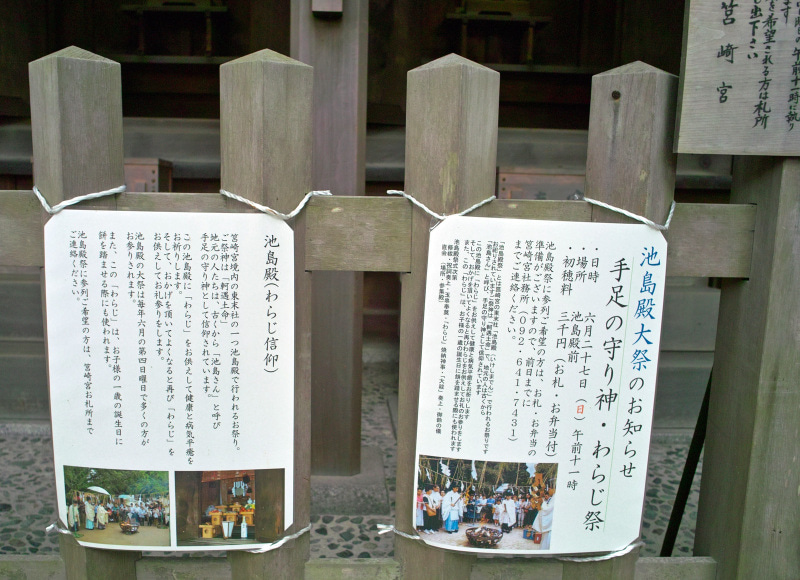 時に執り
を希望される方は札所
出下さい
筥崎宮
池島殿大祭のお知らせ
手足の守り神・わらじ祭
・日時　六月二十七日(日)午前十一時
・場所　池島殿前
・初穂料　三千円(お札・お弁当付)
池島殿祭に参列ご希望の方は、お札・お弁当の
準備がございますので、前日までに
筥崎宮社務所(092・641・7431)
までご連絡ください。
池島殿(わらじ信仰)
筥崎宮境内の東末社の一つ池島殿で行われるお祭り。
ご祭神は「軻遇土命」
地元の人たちは、古くから「池島さん」と呼び
手足の守り神として信仰されています。
この池島殿に「わらじ」をお供えして健康と病気平癒を
お祈りします。
そして、おかげを頂いてよくなると再び「わらじ」を
お供えしてお礼参りをします。
池島殿の大祭は毎年六月の第四日曜日で多くの方が
お参りされます。
また、この「わらじ」は、お子様の一歳の誕生日に
餅を踏ませる際にも使われます。
池島殿祭に参列ご希望の方は、筥崎宮お札所まで
ご連絡ください。